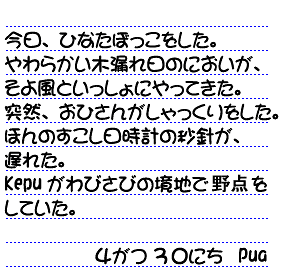 今日、ひなたぼっこをした。
やわらかい木漏れ日のにおいが、
そよ風といっしょにやってきた。
突然、おひさんがしゃっくりをした。
ほんのすこし日時計の秒針が、
遅れた。
Kepu がわびさびの境地で野点を
していた。
4がつ 30にち Pug